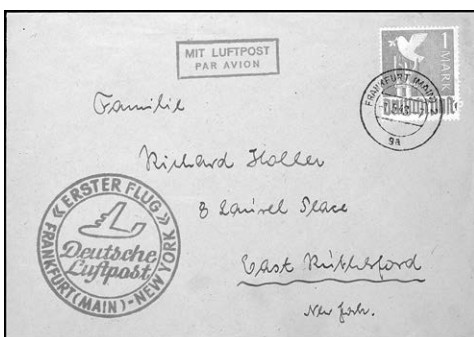 MIT LUFTPOST
PAR AVION
1
MARK
FRANKFURT (MAIN)
9a
Familie
Richard Holler
8 Laurel Place
East Rutherford
New York.
« ERSTER FLUG »
Deutsche
Luftpost
FRANKFURT (MAIN) - NEW YORK